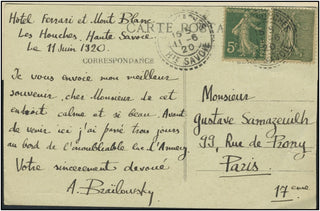 Hotel Ferrari et Mont Blanc
Les Houches. Haute Savoie
Le 11 Juin 1920.
CARTE POSTALE
CORRESPONDANCE
Je vous envoie mon meilleur
souvenir cher Monsieur de cet
endroit calme et si beau. Avant
de venir ici j'ai passé trois jours
au bord de l'inoubliable lac d'Annecy
Votre sincèrement dévoué
A. Brailowsky
15 - 6
20
HTE SAVOIE
5c
Monsieur
Gustave Samazeuilh
99, Rue de Prony
Paris
17eme